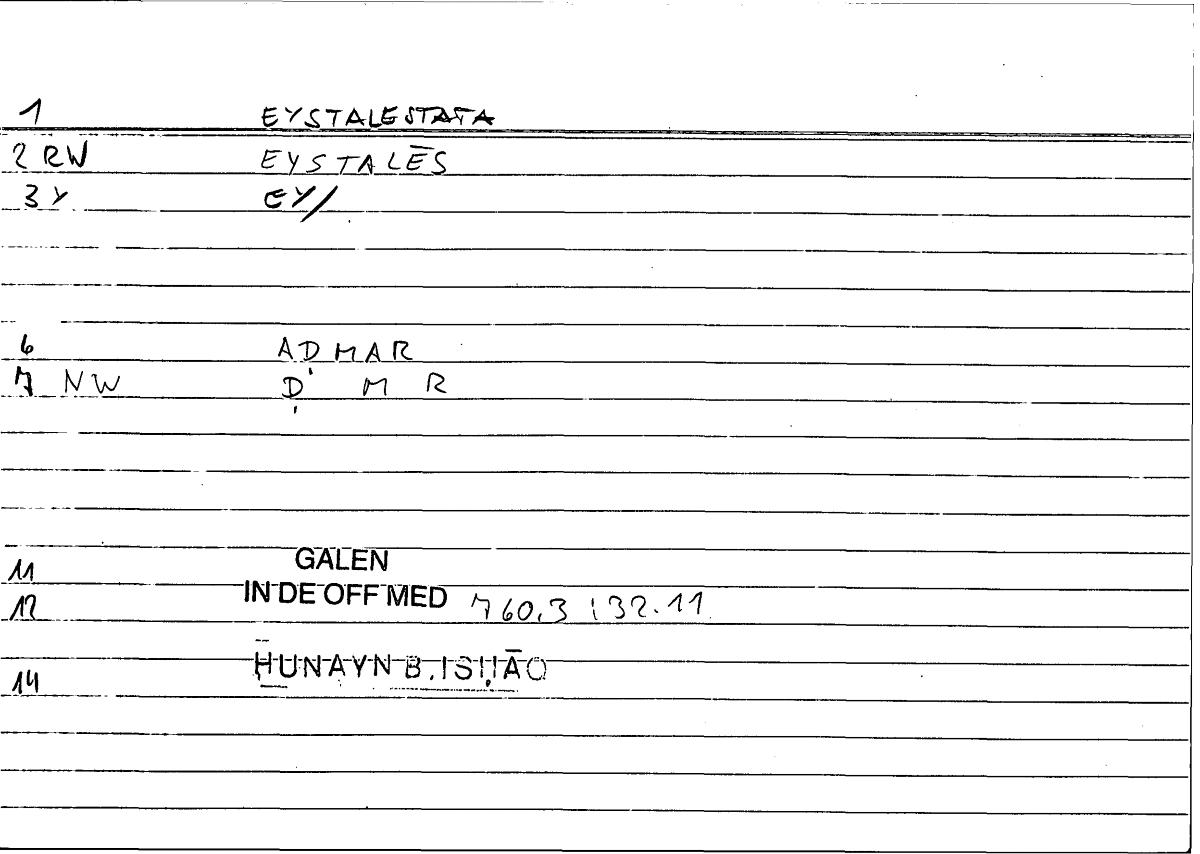 1 EYSTALESTATA
2 RW EYSTALĒS
3 Y EY/
6 AḌMAR
7 NW Ḍ M R
11 GALEN
12 IN DE OFF MED 760.3 : 32.11
14 ḤUNAYN B. ISḤĀQ